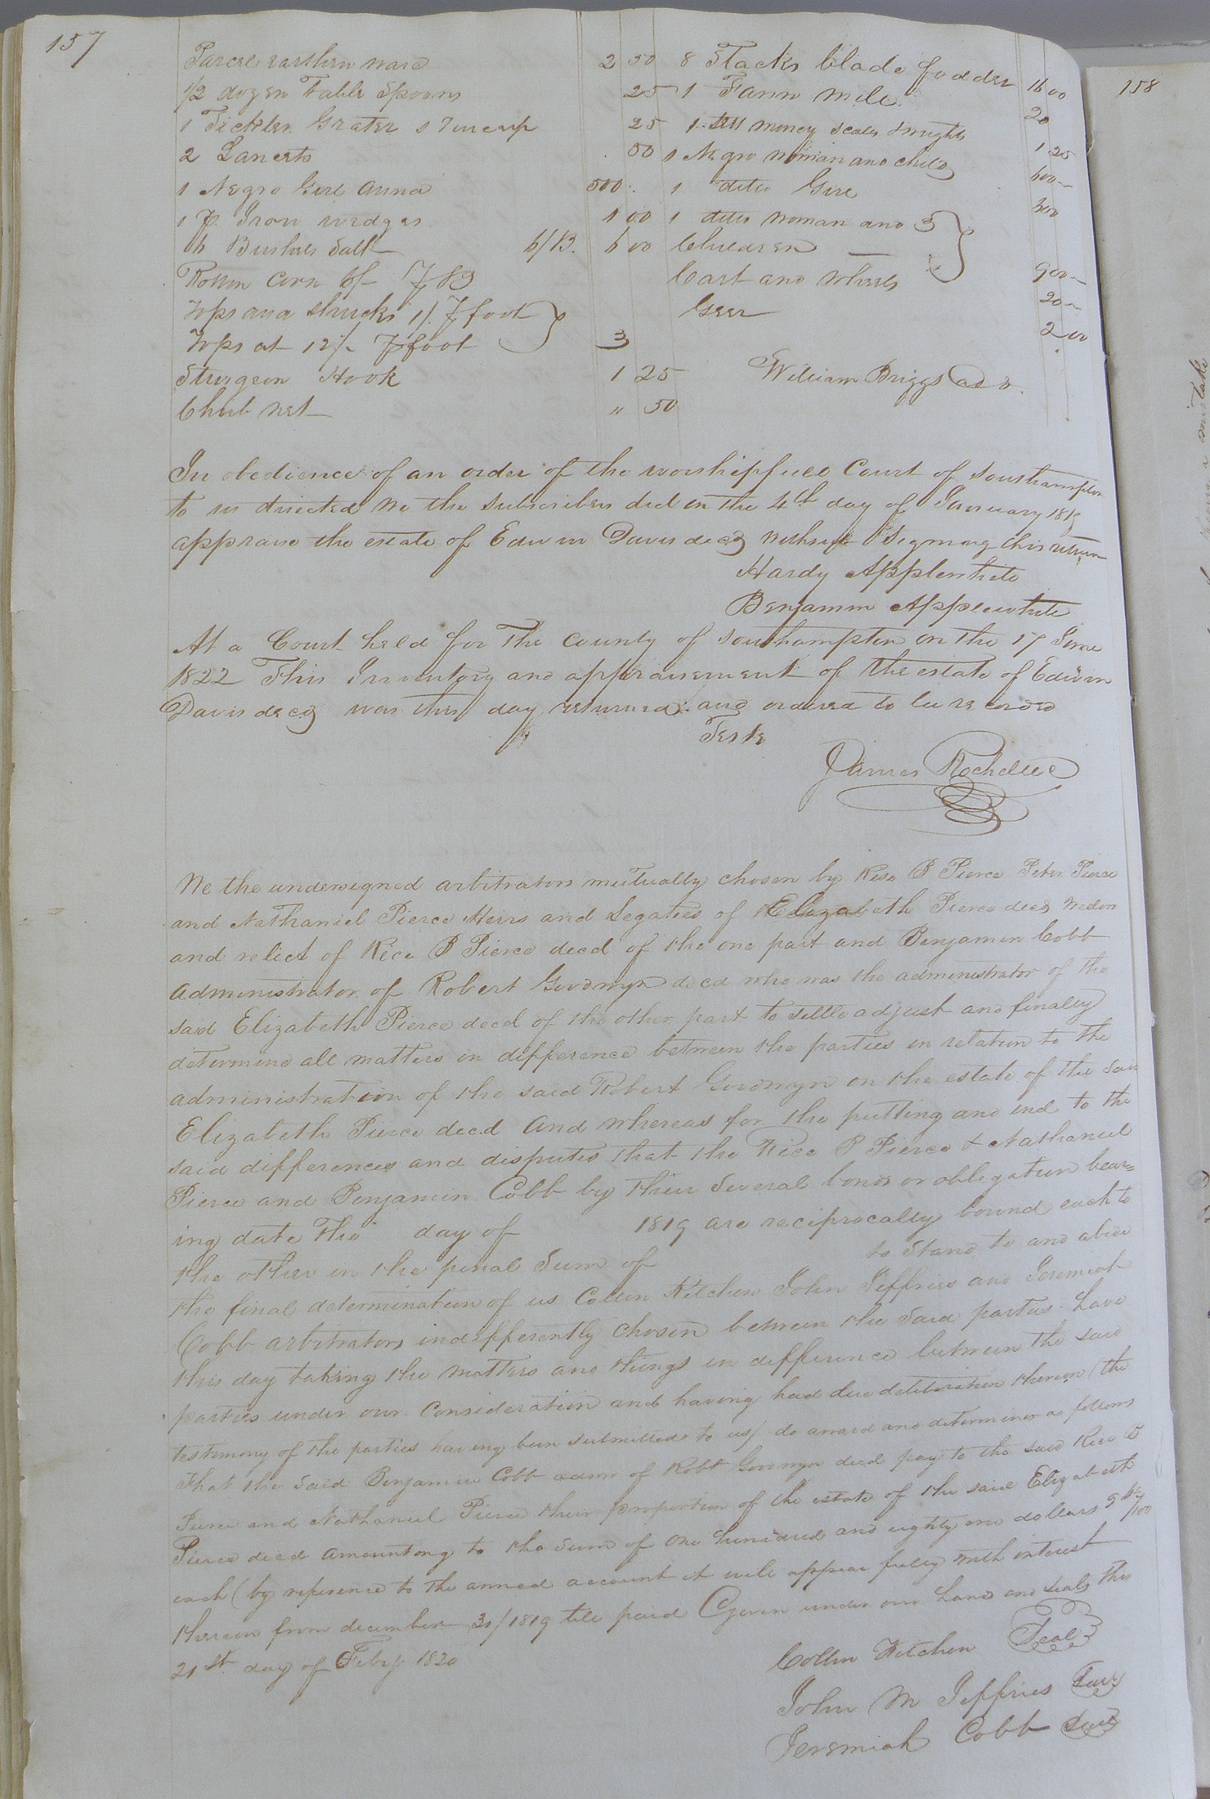 157
158
Parcel earthen ware 2 50
1/2 dozen Table Spoons 25
1 Tickler Grater & Tin cup 25
2 Lancets 50
1 Negro Girl Anna 500
1 pr Iron wedges 1 00
Bushels Salt 6/ B. 6 00
Rotten corn 6/- B
Tops and shucks 1/. foot
Tops at 12/- foot 3
Sturgeon Hook 1 25
Chub net " 50
8 Stacks blade fodder 16 00
1 Fann mill 20
1 sett money scales & weights 1 25
1 Negro woman and child 600
1 ditto Girl 300
1 ditto woman and 3
Children 900
Cart and wheels 20
Geer 2 00
William Briggs adr.
In obedience of an order of the worshipfull Court of Southampton
to us directed We the subscribers did on the 4th day of January
appraise the estate of Edwin Davis decd Witness Signing this return
Hardy Applewhite
Benjamin Applewhite
At a Court held for The county of Southampton on the 17 June
1822 This Inventory and appraisement of the estate of Edwin
Davis decd was this day returned and ordered to be recorded
Teste
James Rochelle
We the undersigned arbitrators mutually chosen by Rice B Pierce Peter Pierce
and Nathaniel Pierce Heirs and Legatees of Elizabeth Pierce decd widow
and relict of Rice B Pierce decd of the one part and Benjamin Cobb
Administrator of Robert Goodwyn decd who was the administrator of the
said Elizabeth Pierce decd of the other part to settle adjust and finally
determine all matters in difference between the parties in relation to the
administration of the said Robert Goodwyn on the estate of the said
Elizabeth Pierce decd And whereas for the putting and end to the
said differences and disputes that the Rice B Pierce & Nathaniel
Pierce and Benjamin Cobb by their several bonds or obligation bear=
ing date The day of 1819 are reciprocally bound each to
the other in the penal Sum of to Stand to and abide
the final determination of us Collin Kitchen John Jeffries and Jeremiah
Cobb arbitrators indifferently chosen between the said parties have
this day taking the matters and things in difference between the said
parties under our consideration and having had due deliberation thereon (the
testimony of the parties having been submitted to us) do award and determined as follows
That the Said Benjamin Cobb admr of Robt Goodwyn decd pay to the said Rice B
Pierce and Nathaniel Pierce their proportion of the estate of the said Elizabeth
Pierce decd amounting to the sum of One hundred and eighty one dollars /100
each (by reference to the annexed account it will appear fully with interest
thereon from december 31/1819 till paid Given under our hand and seals this
21st day of Feby 1820
Collin Kitchen Seal
John M Jeffries Seal
Jeremiah Cobb Seal
mistake